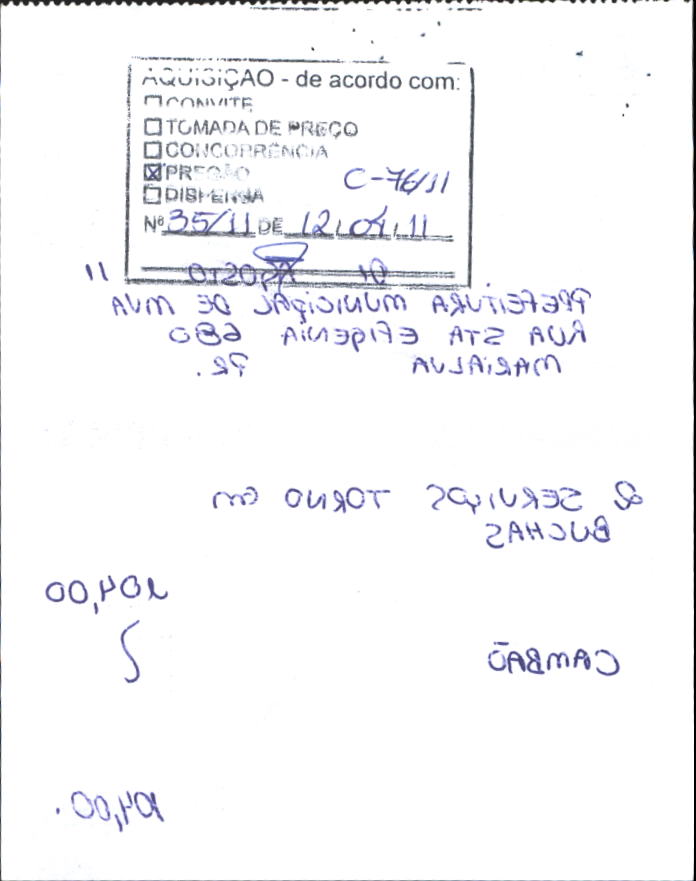 AQUISIÇÃO - de acordo com:
CONVITE
TOMADA DE PREÇO
CONCORRÊNCIA
PREGÃO C-76/11
DISPENSA
Nº 35/11 DE 12/04/11
10 AGOSTO 11
PREFEITURA MUNICIPAL DE MVA
RUA STA EFIGENIA 680
MARIALVA PR.
2 SERVIÇOS TORNO em
BUCHAS
104,00
CAMBÃO
104,00.